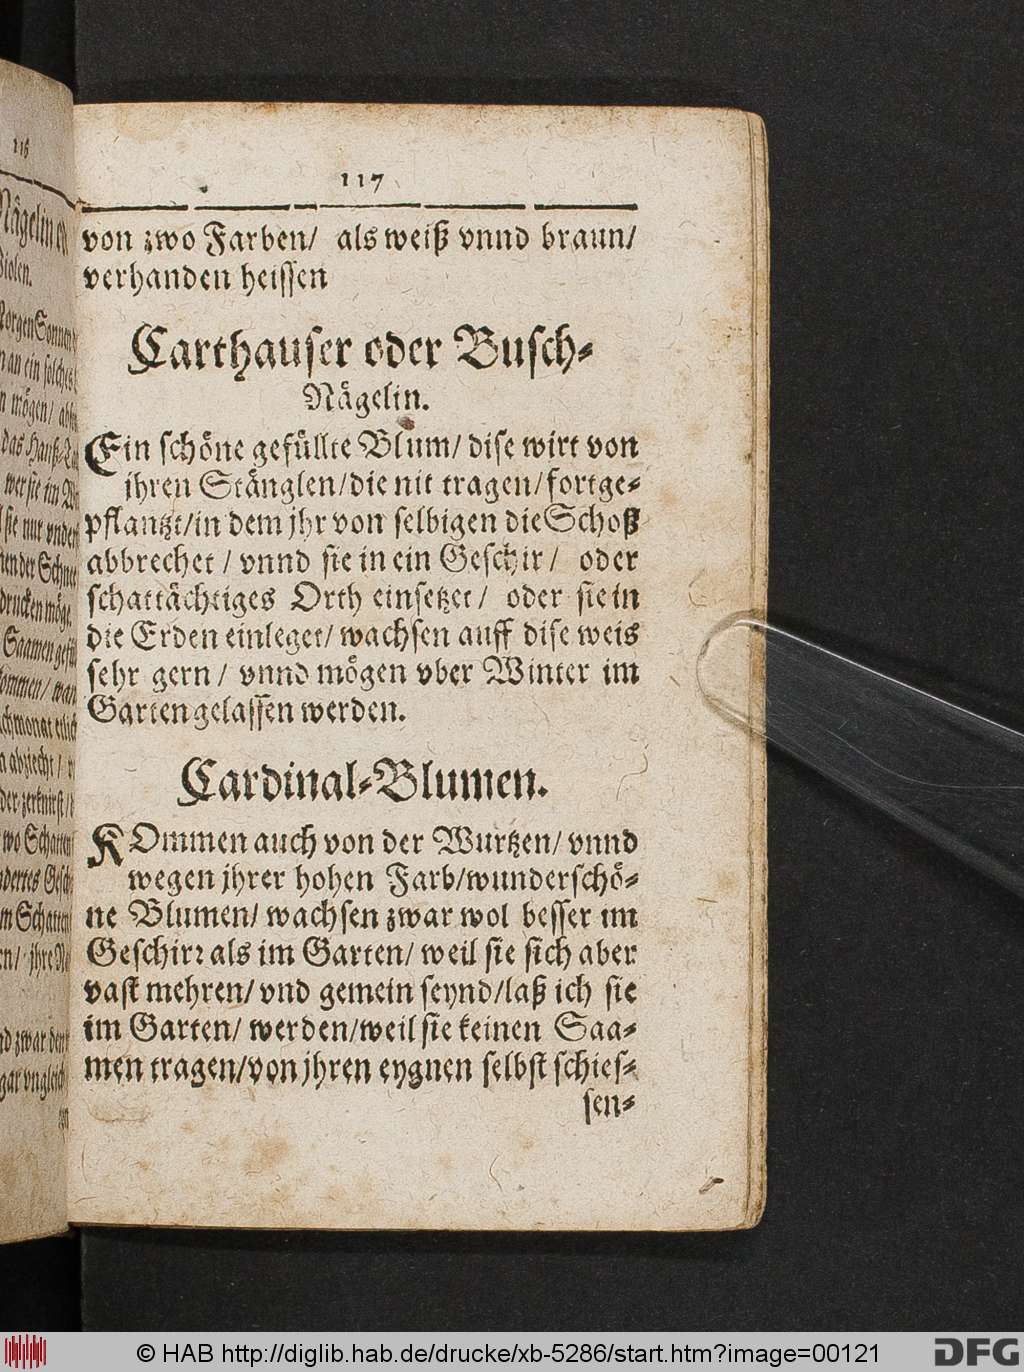 117
von zwo Farben/ als weiß vnnd braun/
verhanden heissen
Carthauser oder Busch-
Nägelin.
Ein schöne gefüllte Blum/ dise wirt von
jhren Stänglen/die nit tragen/fortge-
pflantzt/in dem jhr von selbigen die Schoß
abbrechet / vnnd sie in ein Geschir / oder
schattächtiges Orth einsetzet / oder sie in
die Erden einleget/ wachsen auff dise weis
sehr gern / vnnd mögen vber Winter im
Garten gelassen werden.
Cardinal-Blumen.
KOmmen auch von der Wurtzen/ vnnd
wegen jhrer hohen Farb/wunderschö-
ne Blumen/ wachsen zwar wol besser im
Geschirr als im Garten/ weil sie sich aber
vast mehren/ vnd gemein seynd/laß ich sie
im Garten/ werden/weil sie keinen Saa-
men tragen/von jhren eygnen selbst schies-
sen-
116
Nägelin
Violen.
Morgen Sonnen
an ein solches
mögen/
das Hauß
wer sie im
sie nur vnden
der Schnee
drucken möge.
Saamen gefül
kommen/ wan
a abziecht /
der zerknirst/
wo Schatten
Gesch
m Schatten
en/ jhre
nd zwar den
gar vngleich
© HAB http://diglib.hab.de/drucke/xb-5286/start.htm?image=00121
DFG